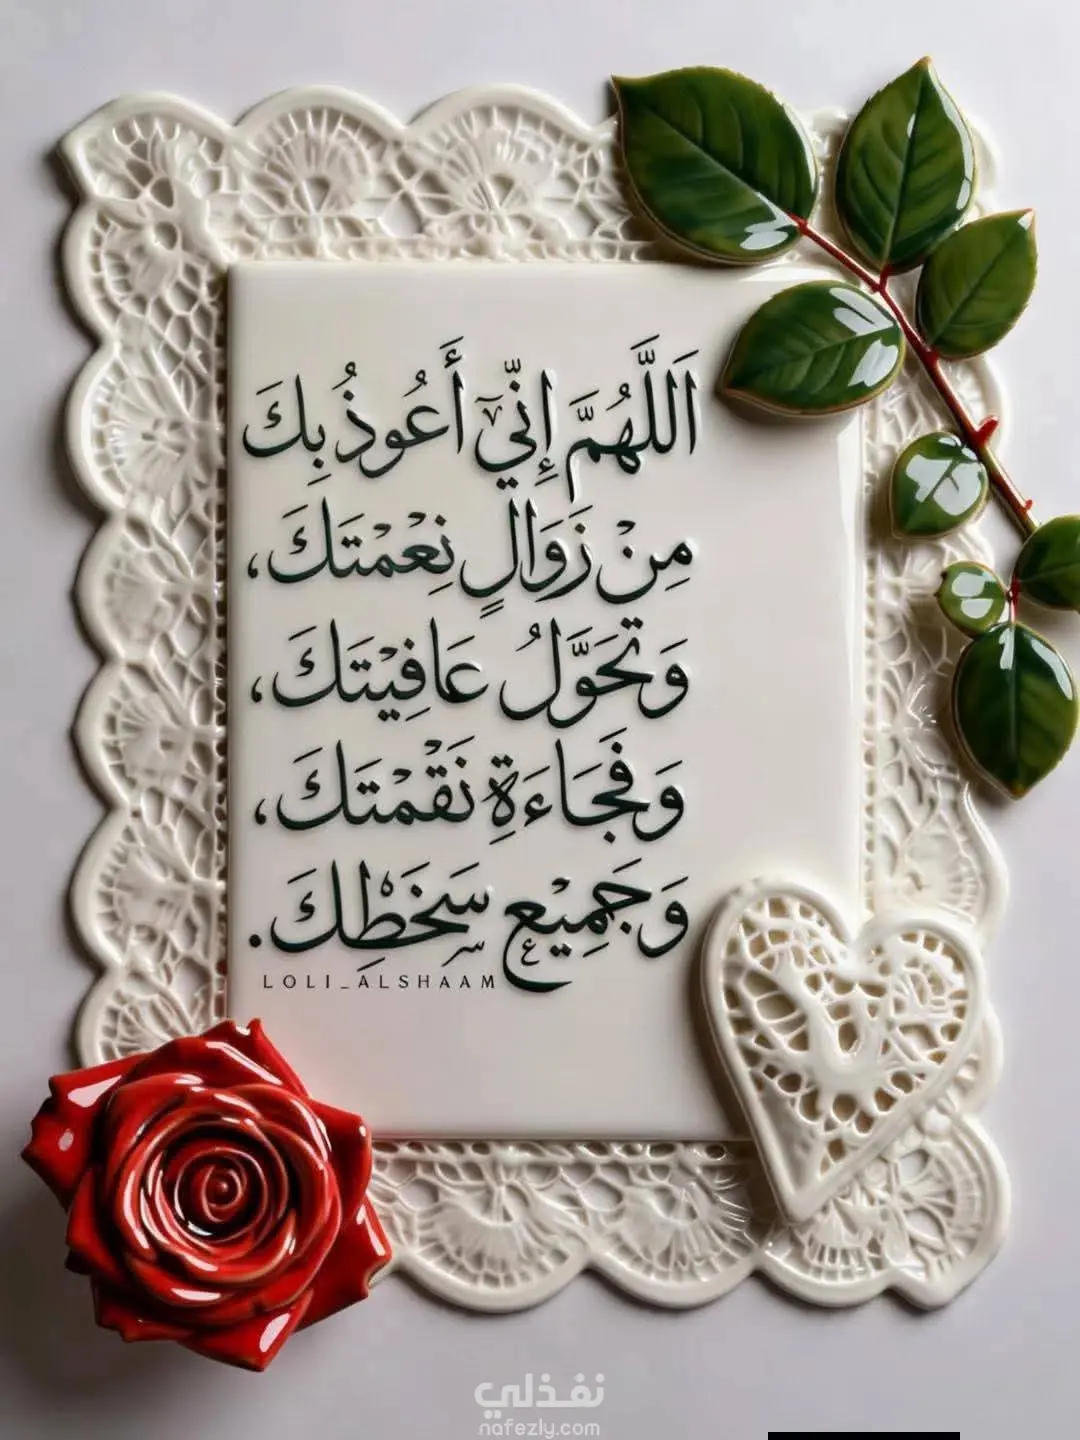 اَللَّهُمَّ إِنِّيٓ أَعُوذُ بِكَ
مِنْ زَوَالٍ نِعْمْتَكَ،
وَتَحَوَّلُ عَافِيْتَكَ،
وَفَجَاءَةِ نَقْمْتَكَ،
وَجَمِيْعِ سَخَطِكَ.
LOLI_ALSHAAM
نفذلي
nafezly.com